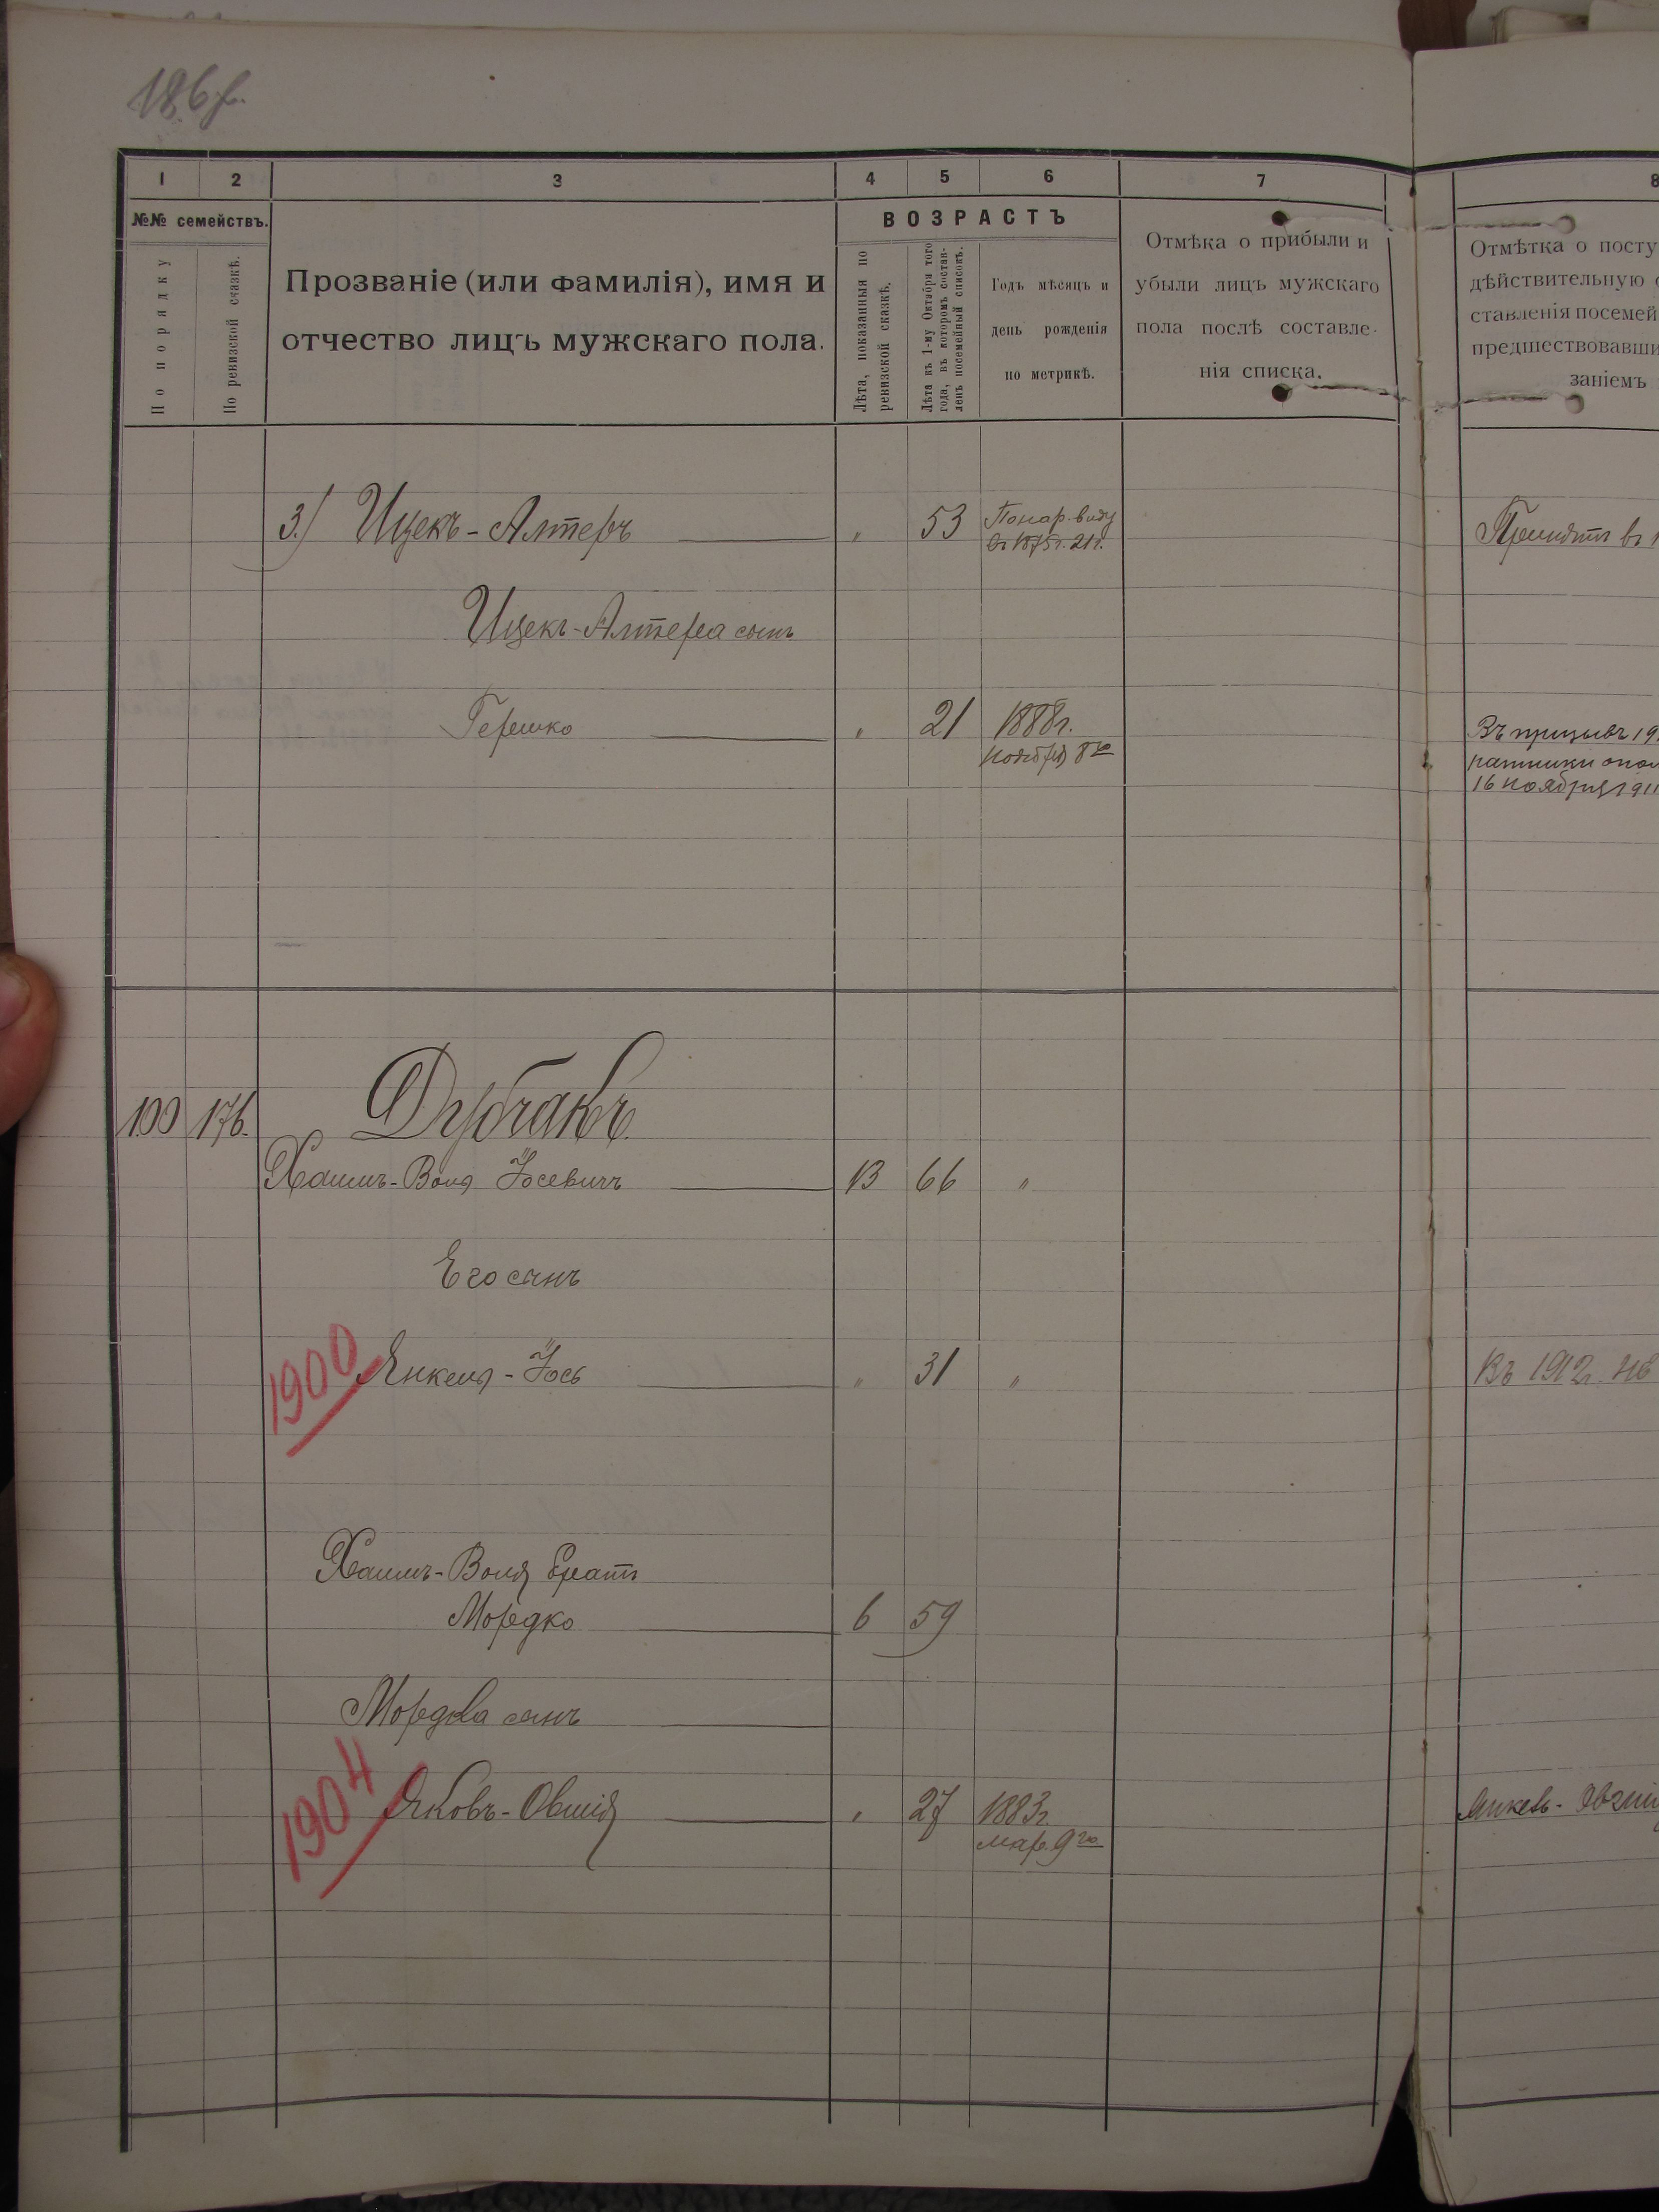 186 об.
1 2 3 4 5 6 7 8
№№ семействъ.
По порядку
По ревизской сказкѣ.
Прозваніе (или фамилія), имя и
отчество лицъ мужскаго пола.
ВОЗРАСТЪ
Лѣта, показанныя по
ревизской сказкѣ.
Лѣта къ 1-му Октября того
года, въ которомъ состав-
ленъ посемейный списокъ.
Годъ мѣсяцъ и
день рожденія
по метрикѣ.
Отмѣка о прибыли и
убыли лицъ мужскаго
пола послѣ составле-
нія списка.
Отмѣтка о посту
дѣйствительную с
ставленія посемей
предшествовавши
заніемъ
3.) Ицекъ-Алтеръ „ 53 По нар. виду
въ 1875 г. 21 г.
Принятъ въ 1
Ицекъ-Алтера сынъ
Гершко „ 21 1888г.
Ноября 8го
Въ призывъ 19
ратники опол
16 ноября 1911
100 176. Дубчакъ
Хаимъ-Воля Іосевичъ 13 66 „
Его сынъ
1900 Янкель-Іось „ 31 „
Въ 1912 г. не
Хаимъ-Воля братъ
Мордко 6 59
Мордка сынъ
1904 Яковъ-Овшія „ 27 1883г.
мар. 9го
Янкель-Овшія